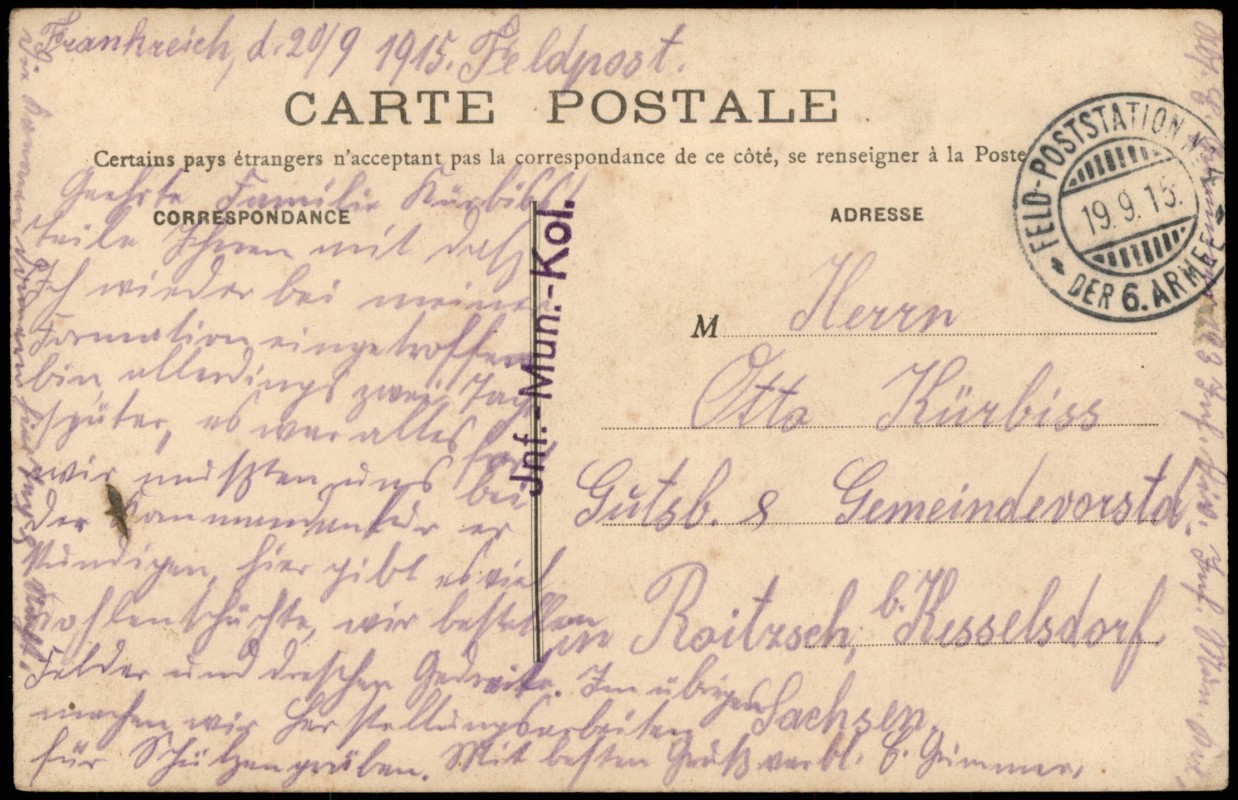 Frankreich, d. 20/9 1915. Feldpost.
CARTE POSTALE
Certains pays étrangers n'acceptant pas la correspondance de ce côté, se renseigner à la Poste
CORRESPONDANCE
ADRESSE
Geehrte Familie Kürbiß
teile Ihnen mit daß
Ich wieder bei meiner
Formation eingetroffen
bin allerdings zwei Tage
später, es war alles fort
wir mußten uns bei
der Kommandantur er
kundigen, hier gibt es viel
Kohlenschächte, wir bestellen
Felder und dreschen Gedreite. Im übrigen
machen wir Herstellungsarbeiten
für Schützengräben. Mit besten Gruß verbl.
Jnf.-Mun.-Kol.
FELD-POSTSTATION Nr.
19.9.15.
DER 6. ARMEE
M Herrn
Otto Kürbiss
Gutsb. & Gemeindevorstd.
in Roitzsch, b. Kesselsdorf
Sachsen.